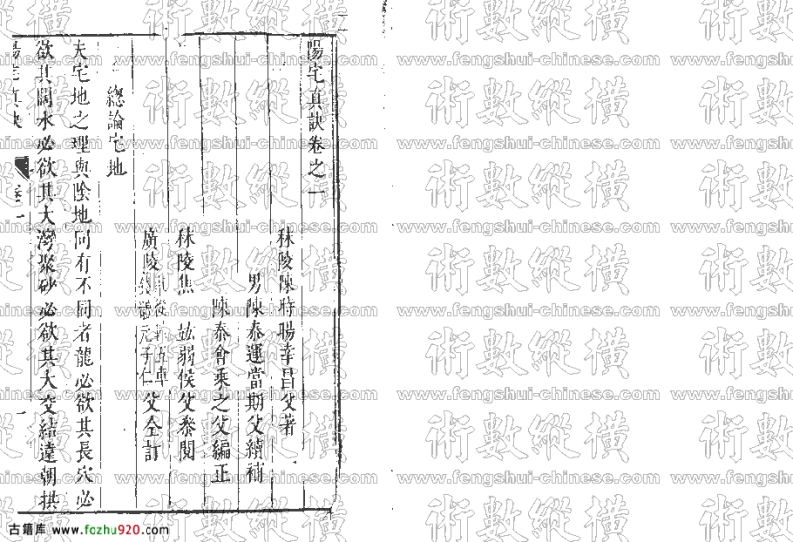 陽宅真訣卷之一
秣陵陳時暘幸昌父著
男陳泰運當期父續補
陳泰會乘之父編正
秣陵焦竑弱侯父叅閱
廣陵 父仝訂
總論宅地
夫宅地之理與陰地同有不同者龍必欲其長穴必
欲其闊水必欲其大灣聚砂必欲其大交結遠朝拱
陽宅真訣 卷一 一
術數縱橫
www.fengshui-chinese.com
古籍库 www.fozhu920.com